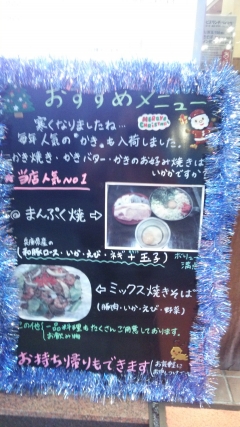 おすすめメニュー
MERRY Christmas
寒くなりましたね…
毎年人気の"かき"も入荷しました。
かき焼き・かきバター・かきのお好み焼きは
いかがですか
当店人気No1
@ まんぷく焼→
兵庫県産の
(和豚ロース・いか・えび・ネギ+玉子)
ボリューム
満点
←ミックス焼きそば
(豚肉・いか・えび・野菜)
この他、一品料理もたくさんご用意しております。
お飲み物
お持ち帰りもできます
(お気軽に